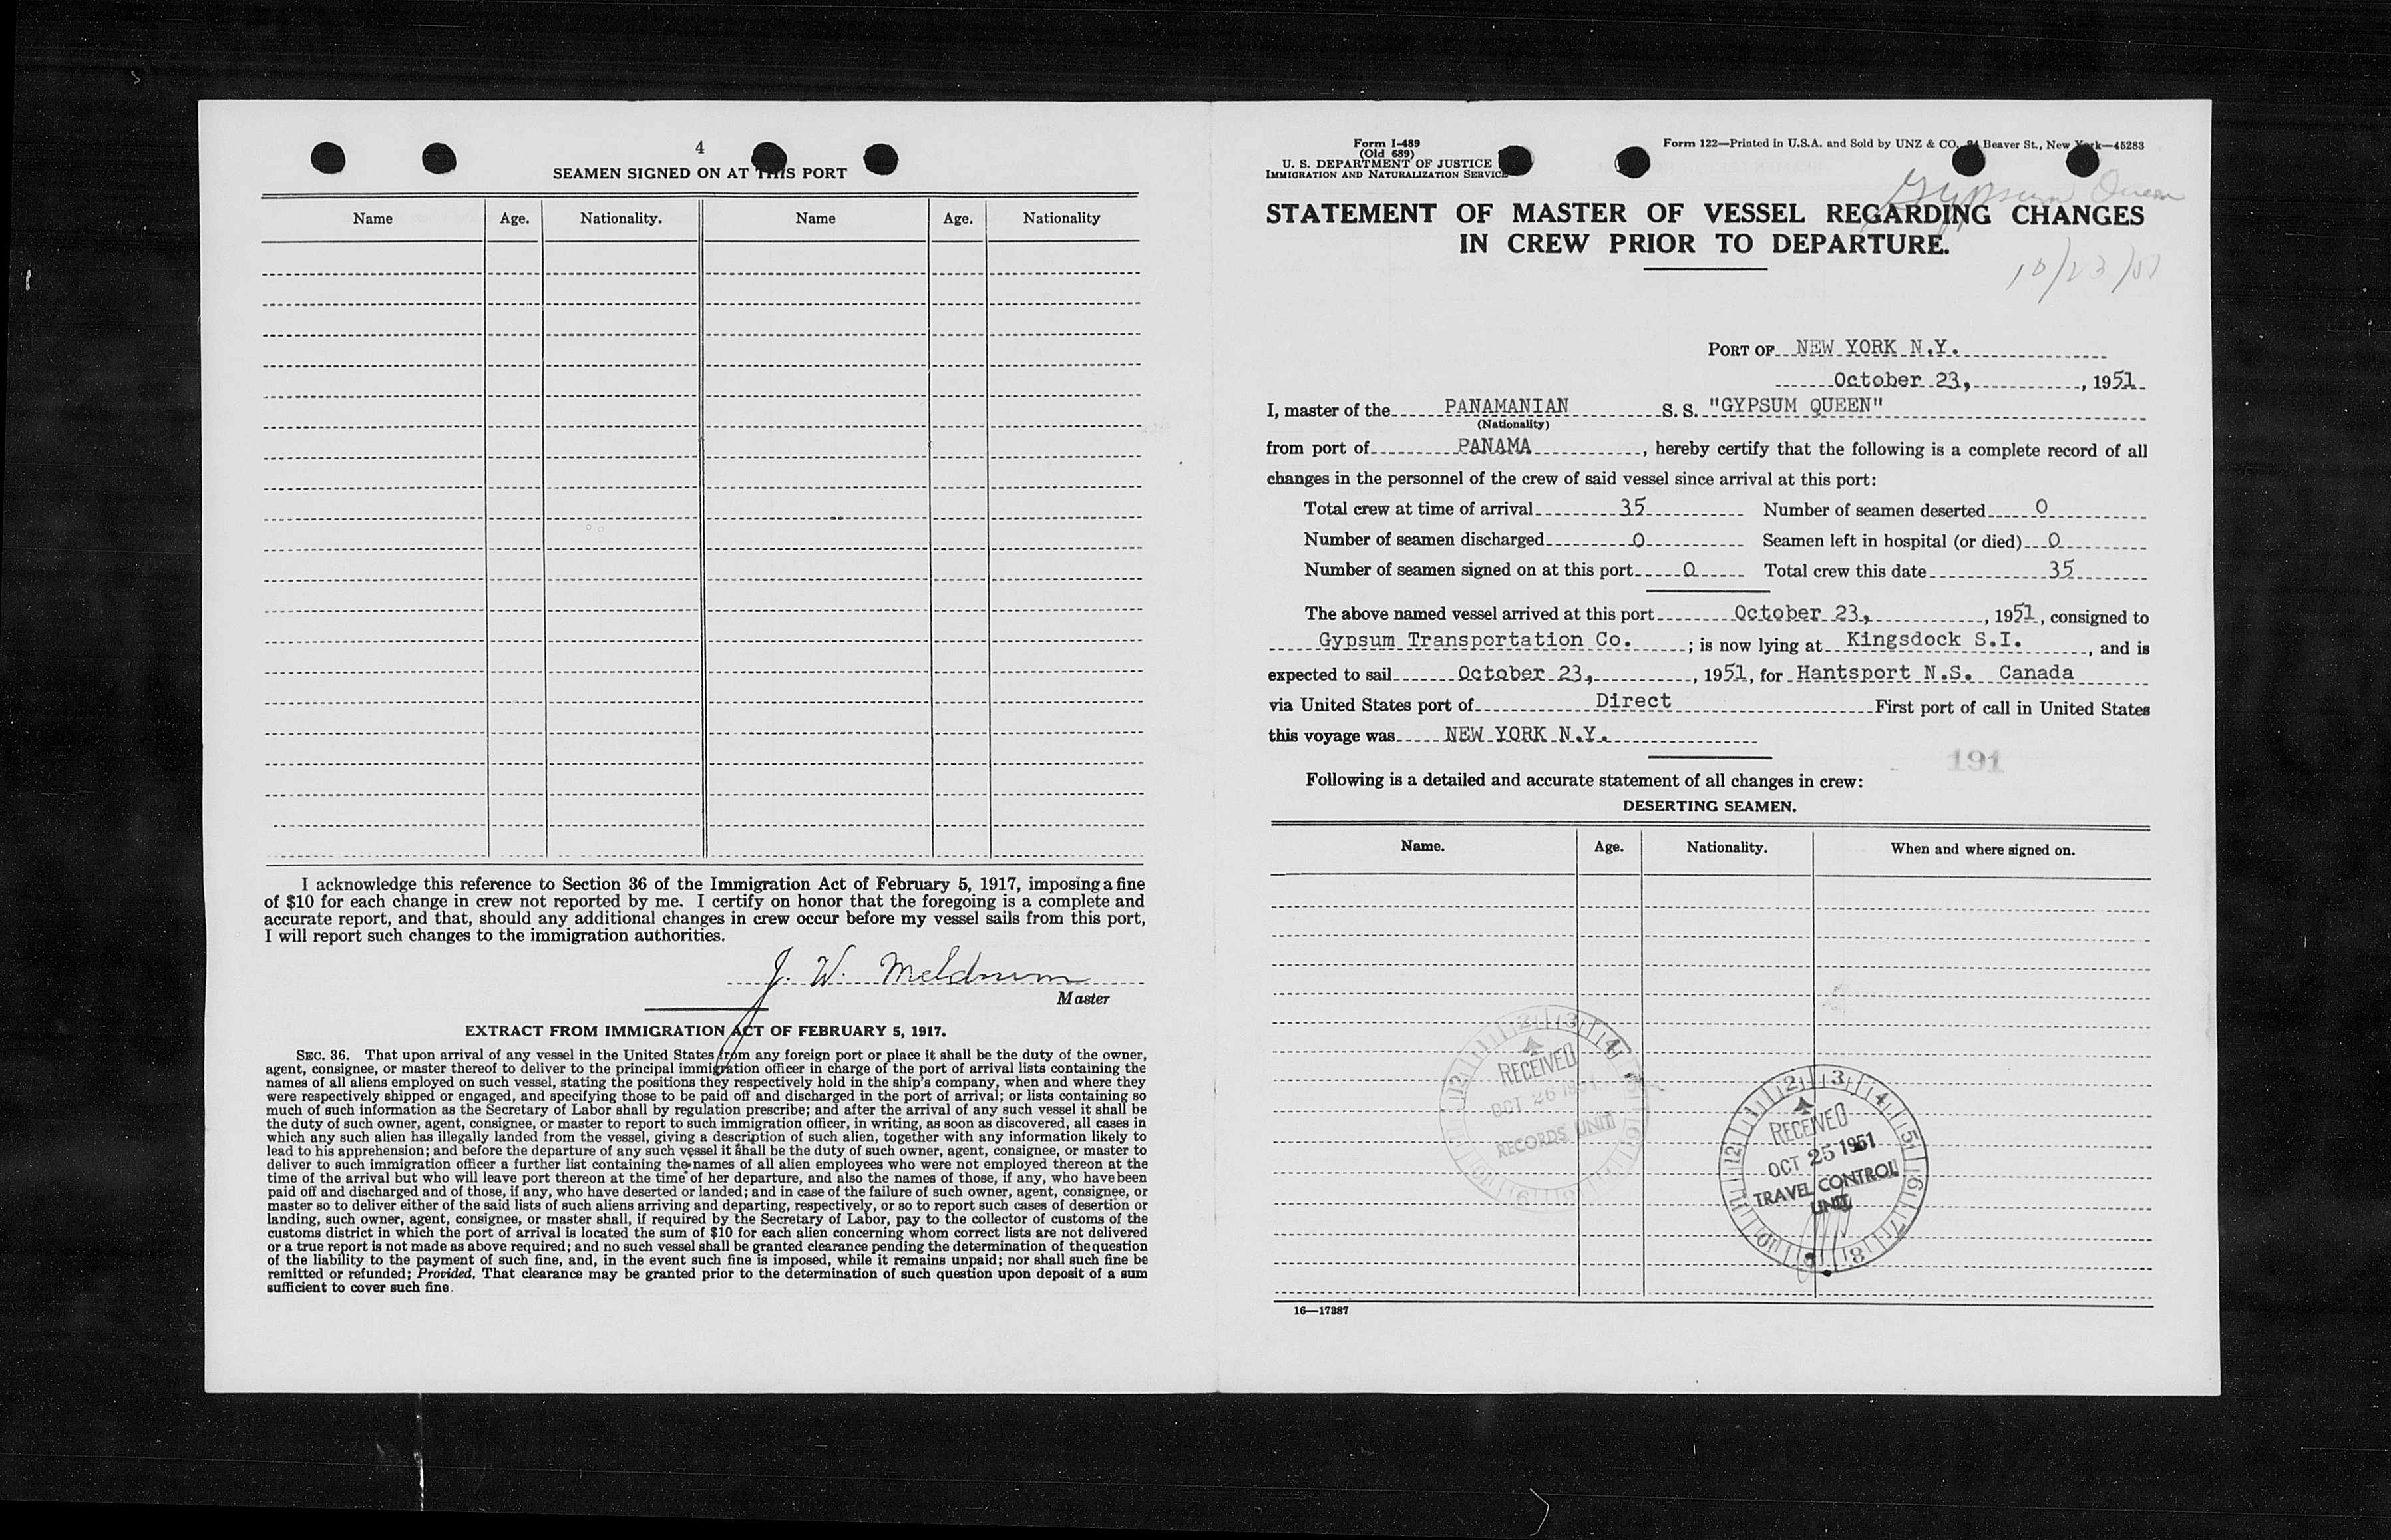 4
SEAMEN SIGNED ON AT THIS PORT
Name Age. Nationality. Name Age. Nationality
I acknowledge this reference to Section 36 of the Immigration Act of February 5, 1917, imposing a fine
of $10 for each change in crew not reported by me. I certify on honor that the foregoing is a complete and
accurate report, and that, should any additional changes in crew occur before my vessel sails from this port,
I will report such changes to the immigration authorities.
J. W. Meldrum
Master
EXTRACT FROM IMMIGRATION ACT OF FEBRUARY 5, 1917.
SEC. 36. That upon arrival of any vessel in the United States from any foreign port or place it shall be the duty of the owner,
agent, consignee, or master thereof to deliver to the principal immigration officer in charge of the port of arrival lists containing the
names of all aliens employed on such vessel, stating the positions they respectively hold in the ship's company, when and where they
were respectively shipped or engaged, and specifying those to be paid off and discharged in the port of arrival; or lists containing so
much of such information as the Secretary of Labor shall by regulation prescribe; and after the arrival of any such vessel it shall be
the duty of such owner, agent, consignee, or master to report to such immigration officer, in writing, as soon as discovered, all cases in
which any such alien has illegally landed from the vessel, giving a description of such alien, together with any information likely to
lead to his apprehension; and before the departure of any such vessel it shall be the duty of such owner, agent, consignee, or master to
deliver to such immigration officer a further list containing the names of all alien employees who were not employed thereon at the
time of the arrival but who will leave port thereon at the time of her departure, and also the names of those, if any, who have been
paid off and discharged and of those, if any, who have deserted or landed; and in case of the failure of such owner, agent, consignee, or
master so to deliver either of the said lists of such aliens arriving and departing, respectively, or so to report such cases of desertion or
landing, such owner, agent, consignee, or master shall, if required by the Secretary of Labor, pay to the collector of customs of the
customs district in which the port of arrival is located the sum of $10 for each alien concerning whom correct lists are not delivered
or a true report is not made as above required; and no such vessel shall be granted clearance pending the determination of the question
of the liability to the payment of such fine, and, in the event such fine is imposed, while it remains unpaid; nor shall such fine be
remitted or refunded; Provided, That clearance may be granted prior to the determination of such question upon deposit of a sum
sufficient to cover such fine.
Form I-489
(Old 689)
U. S. DEPARTMENT OF JUSTICE
IMMIGRATION AND NATURALIZATION SERVICE
Form 122—Printed in U.S.A. and Sold by UNZ & CO., Beaver St., New York—45283
Gypsum Queen
STATEMENT OF MASTER OF VESSEL REGARDING CHANGES
IN CREW PRIOR TO DEPARTURE.
10/23/51
PORT OF NEW YORK N.Y.
October 23, , 1951
I, master of the PANAMANIAN S. S. "GYPSUM QUEEN"
(Nationality)
from port of PANAMA , hereby certify that the following is a complete record of all
changes in the personnel of the crew of said vessel since arrival at this port:
Total crew at time of arrival 35 Number of seamen deserted 0
Number of seamen discharged 0 Seamen left in hospital (or died) 0
Number of seamen signed on at this port 0 Total crew this date 35
The above named vessel arrived at this port October 23, , 1951, consigned to
Gypsum Transportation Co. ; is now lying at Kingsdock S.I. , and is
expected to sail October 23, , 1951, for Hantsport N.S. Canada
via United States port of Direct First port of call in United States
this voyage was NEW YORK N.Y.
191
Following is a detailed and accurate statement of all changes in crew:
DESERTING SEAMEN.
Name. Age. Nationality. When and where signed on.
RECEIVED
OCT 26 1951
RECORDS UNIT
RECEIVED
OCT 25 1951
TRAVEL CONTROL
UNIT
16—17387